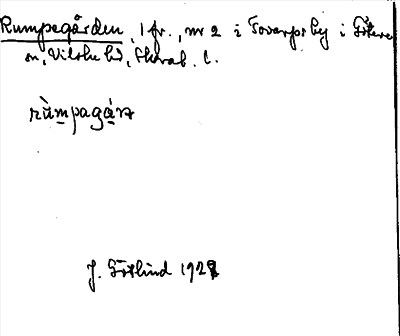 Rumpegården, 1 fr., nr 2 i Tovarps by i Flöere
sn, Vilske hd, Skarab. l.
rùmpagáɳ
J. Götlind 1928